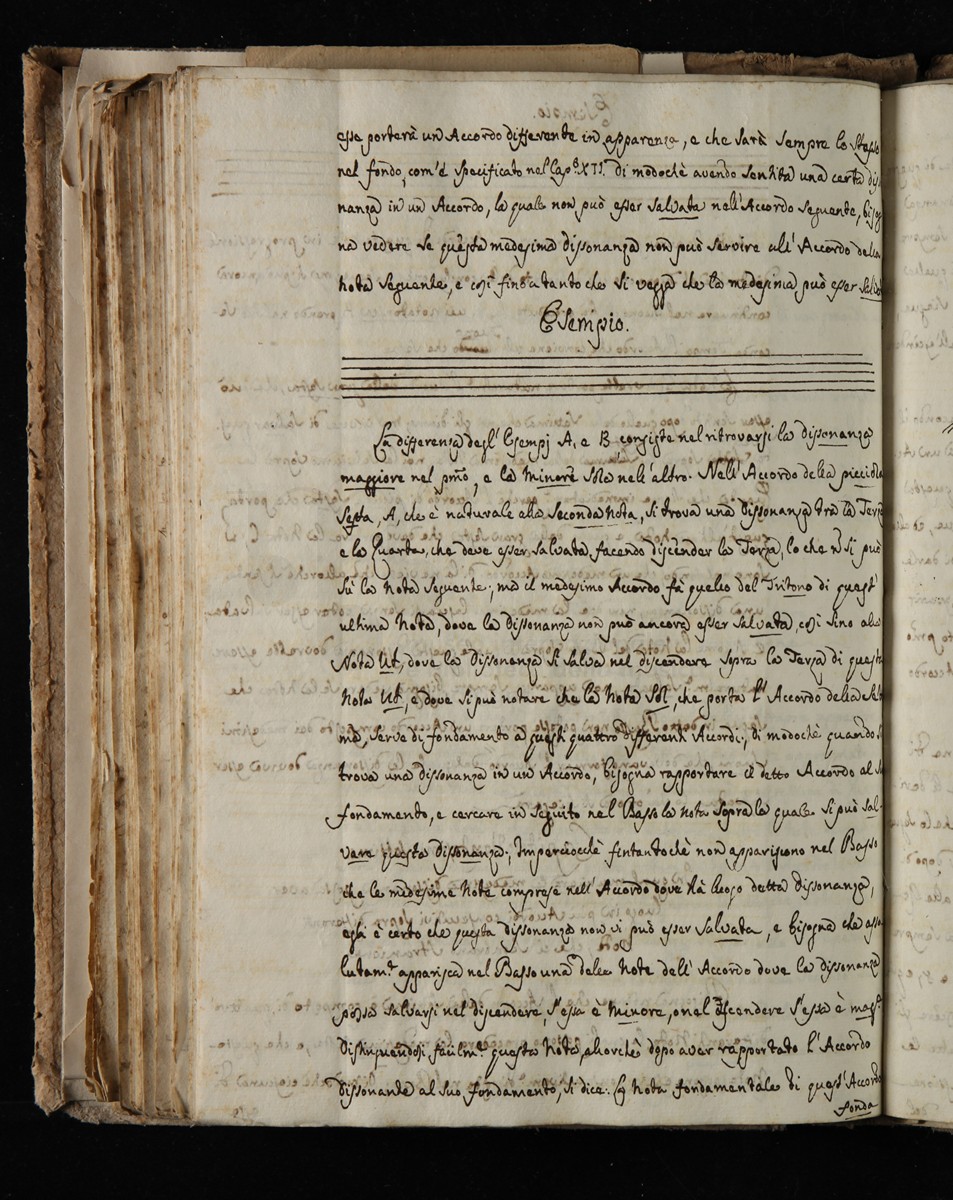 esse porterà un Accordo differente in apparenza, e che sarà sempre lo stesso
nel fondo, com'è specificato nel Cap.º XII. di modochè avendo sentita una certa dis,
nanza in un Accordo, la quale non può esser salvata nell'Accordo seguente, bisog
na vedere se questa medesima dissonanza non può servire all'Accordo della
nota seguente, e così fino a tanto che si vegga che la medesima può esser salva
Esempio.
La differenza degl'Esempj A, e B consiste nel ritrovarsi la dissonanza
maggiore nel pmo, e la minore sola nell'altro. Nell'Accordo della picciola
Sesta, A, che è naturale alla Seconda nota, si trova una dissonanza tra la Terza
e la Quarta, che deve esser salvata facendo discender la Terza, lo che ñ si può
sù la nota seguente, ma il medesimo Accordo fà quello del Tritono di quest'
ultima nota, dove la dissonanza non può ancora esser salvata, così sino alla
Nota Ut, dove la dissonanza si salva nel discendere sopra la Terza di questa
nota Ut, e dove si può notare che la nota Sol, che porta l'Accordo della Setti
ma, serve di fondamento a questi quattro differenti Accordi, di modochè quando si
trova una dissonanza in un Accordo, bisogna rapportare il detto Accordo al su
fondamento, e cercare in seguito nel Basso la nota sopra la quale si può sal
vare questa dissonanza; Imperciocchè fintantochè non appariscono nel Basso
che le medesime note comprese nell'Accordo dove hà luogo detta dissonanza,
egli è certo che questa dissonanza non vi può esser salvata, e bisogna che asso
lutam.e apparisca nel Basso una delle note dell'Accordo dove la dissonanza
possa salvarsi nel discendere, s'essa è minore, o nel ascendere s'essa è magg.e
Distinguendosi facilm.e questa nota, allorchè dopo aver rapportato l'Accordo
dissonante al suo fondamento, si dice: la nota fondamentale di quest'Accordo
fonda